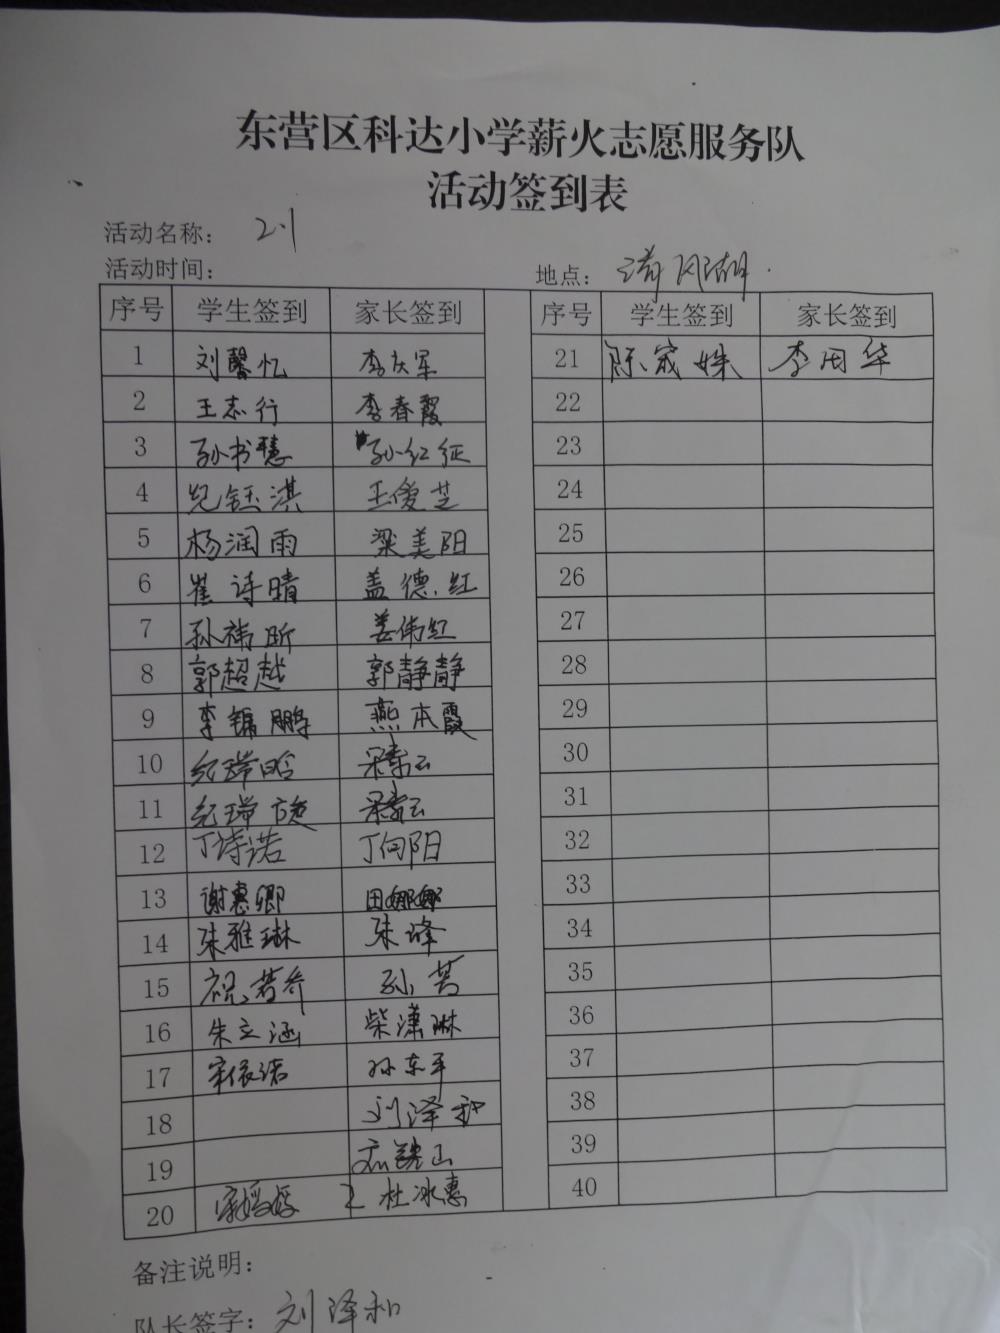 东营区科达小学薪火志愿服务队
活动签到表
活动名称： 2.1
活动时间：
地点： 清风湖.
序号 学生签到 家长签到 序号 学生签到 家长签到
1 刘馨忆 李庆军 21 陈宬姝 李国华
2 王志行 李春霞 22
3 孙书慧 孙红征 23
4 纪钰淇 王俊芝 24
5 杨润雨 梁美阳 25
6 崔诗晴 盖德红 26
7 孙祎昕 姜伟红 27
8 郭超越 郭静静 28
9 李镐鹏 燕本霞 29
10 纪瑞晗 30
11 纪瑞旋 31
12 丁诗诺 丁向阳 32
13 谢惠卿 田娜娜 33
14 朱雅琳 朱峰 34
15 祝若乔 孙芳 35
16 朱立涵 柴潇琳 36
17 宋依诺 孙东平 37
18 刘泽和 38
19 39
20 杜冰惠 40
备注说明：
队长签字： 刘泽和